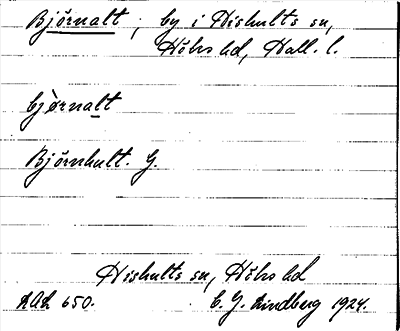 Björnalt; by i Hishults sn,
Höks hd, Hall. l.
bjørnalt
Björnhult. G.
Hishults sn, Höks hd
DAL 650. C. G. Lindberg 1924.